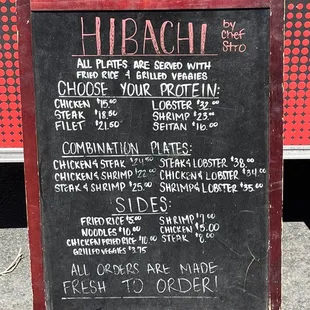 HIBACHI by Chef Stro
ALL PLATES ARE SERVED WITH
FRIED RICE & GRILLED VEGGIES
CHOOSE YOUR PROTEIN:
CHICKEN $15.00 LOBSTER $32.00
STEAK $18.50 SHRIMP $23.00
FILET $21.50 SEITAN $16.00
COMBINATION PLATES:
CHICKEN & STEAK $24.50 STEAK & LOBSTER $38.00
CHICKEN & SHRIMP $22.00 CHICKEN & LOBSTER $34.00
STEAK & SHRIMP $25.00 SHRIMP & LOBSTER $35.00
SIDES:
FRIED RICE $5.00 SHRIMP $7.00
NOODLES $10.00 CHICKEN $5.00
CHICKEN FRIED RICE $10.00 STEAK $8.00
GRILLED VEGGIES $3.75
ALL ORDERS ARE MADE
FRESH TO ORDER!